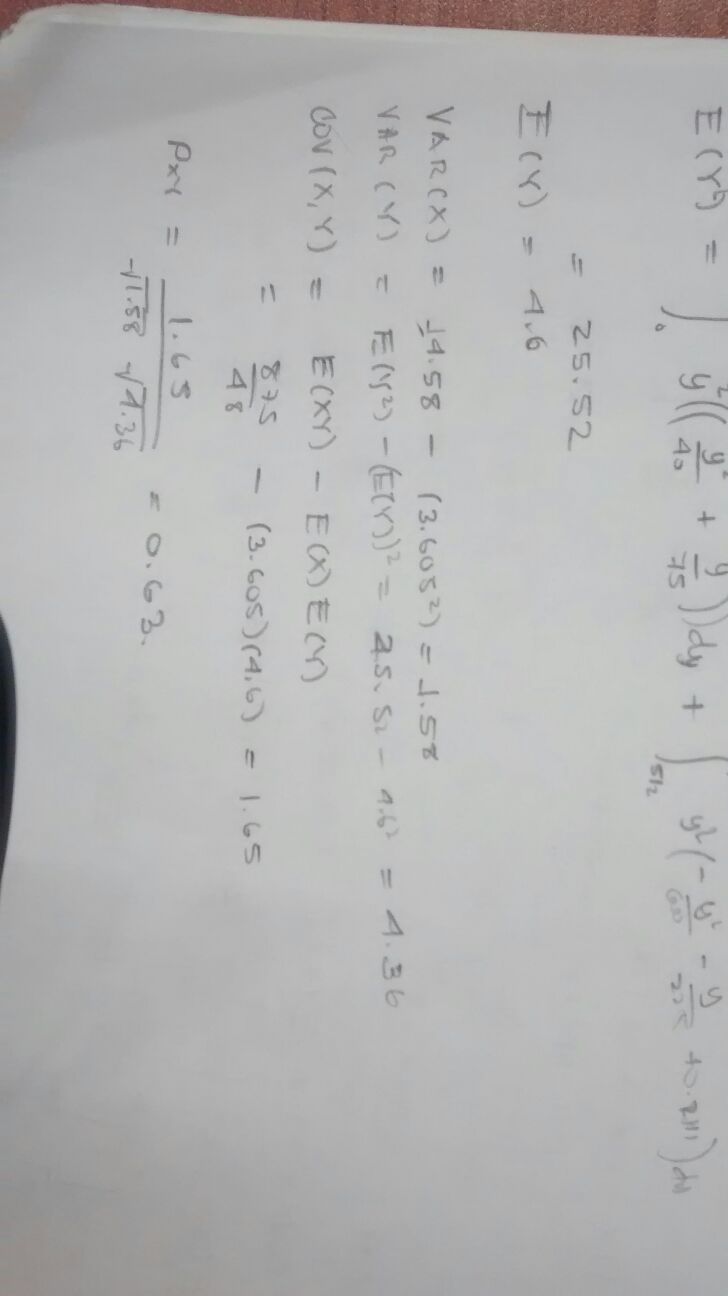 E(Y²) = ∫₀ y²((y²/40 + y/75))dy + ∫_{5/2} y²(-y²/60 - y/225 + 0.2111)dy
= 25.52
E(Y) = 4.6
VAR(X) = 14.58 - (3.605²) = 1.58
VAR(Y) = E(Y²) - (E(Y))² = 25.52 - 4.6² = 4.36
COV(X,Y) = E(XY) - E(X)E(Y)
= 875/48 - (3.605)(4.6) = 1.65
ρxy = 1.65/(√1.58 √4.36) = 0.63.